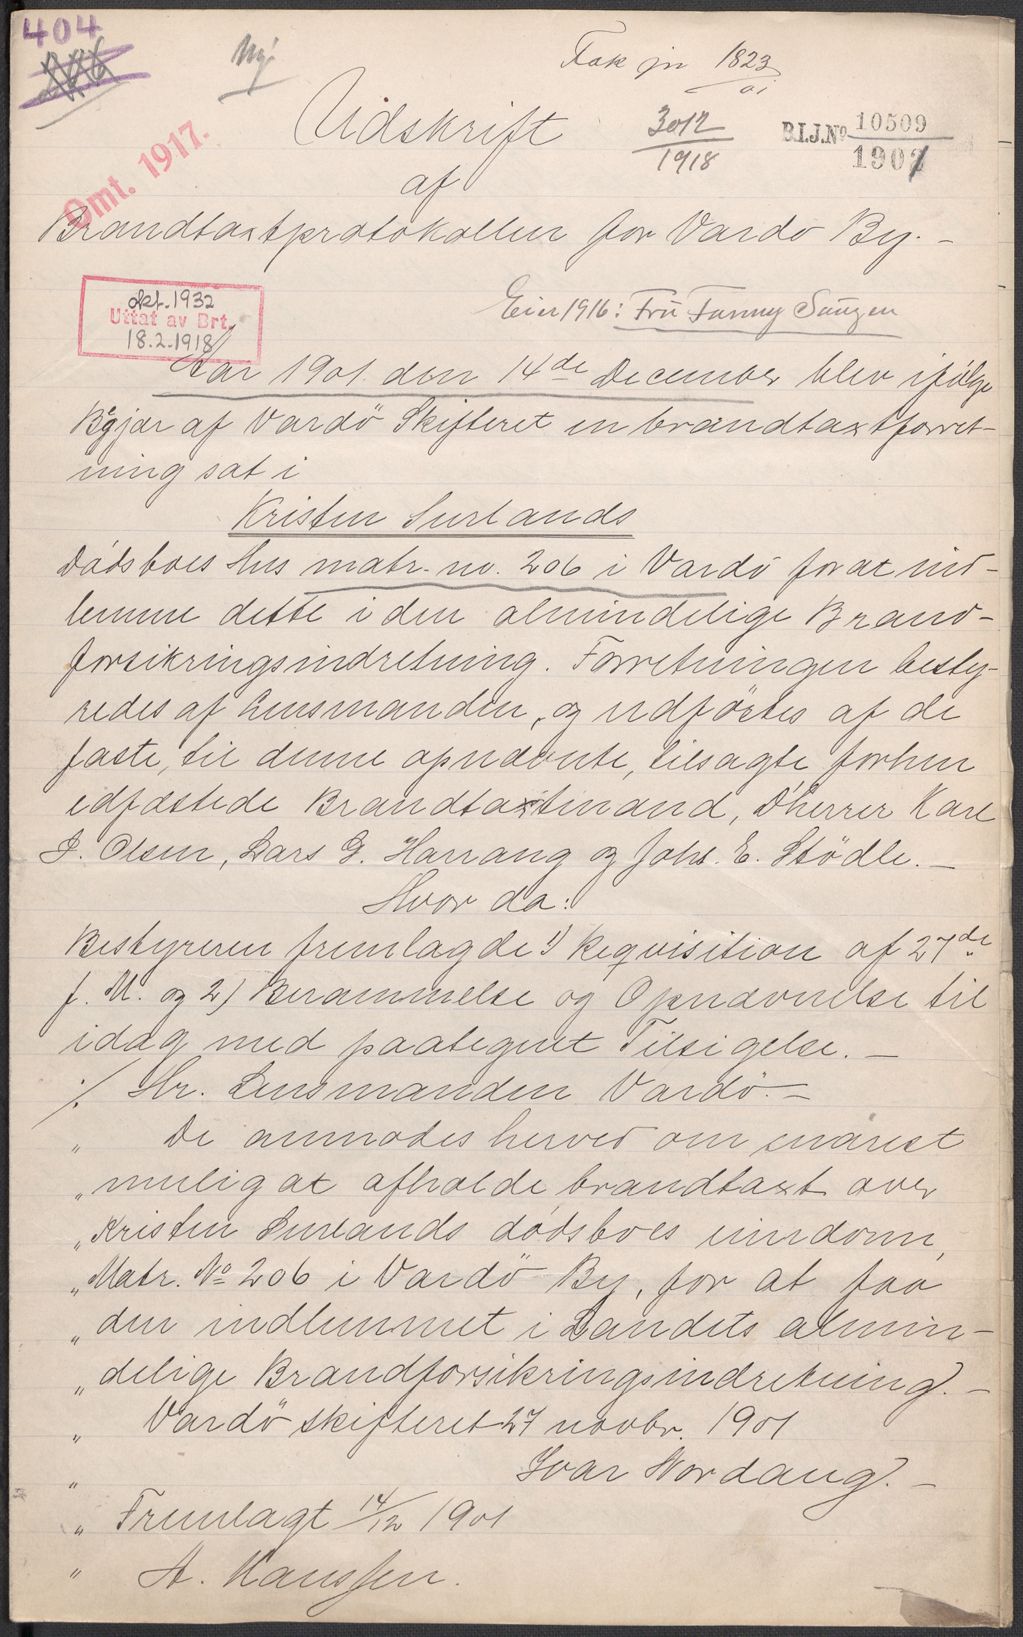 404
Ny
Fak jn 1823/01
Udskrift
3012/1918
B.I.J.No 10509/1901
Omt. 1917.
af
Brandtaxtprotokollen for Vardø By. –
Eier 1916: Fru Fanny
okt. 1932
Uttat av Brt.
18.2.1918
Aar 1901 den 14de December blev ifølge
Begjær af Vardö Skifteret en brandtaxtforret-
ning sat i
Kristen Surlands
Dødsboes Hus matr. no. 206 i Vardö for at ind-
lemme dette i den almindelige Brand-
forsikringsindretning. Forretningen besty-
redes af Lensmanden, og udførtes af de
faste, til denne opnævnte, tilsagte, forhen
edfæstede Brandtaxtmænd, D'herrer Karl
J. Olsen, Lars G. Harrang og Johs. E. Stödle. –
Hvor da:
Bestyreren fremlagde 1) Reqvisition af 27de
f. M. og 2) Berammelse og Opnævnelse til
idag med paategnet Tilsigelse. –
./. Hr. Lensmanden Vardö. –
„ De anmodes herved om snarest
„ mulig at afholde brandtaxt over
„ Kristen Surlands dødsboes eiendom,
„ Matr. No 206 i Vardö By, for at faa
„ den indlemmet i Landets almin-
„ delige Brandforsikringsindretning. –
„ Vardö skifteret 27 novbr. 1901
„ Ivar Nordaug. –
„ Fremlagt 14/12 1901
„ A. Hanssen.